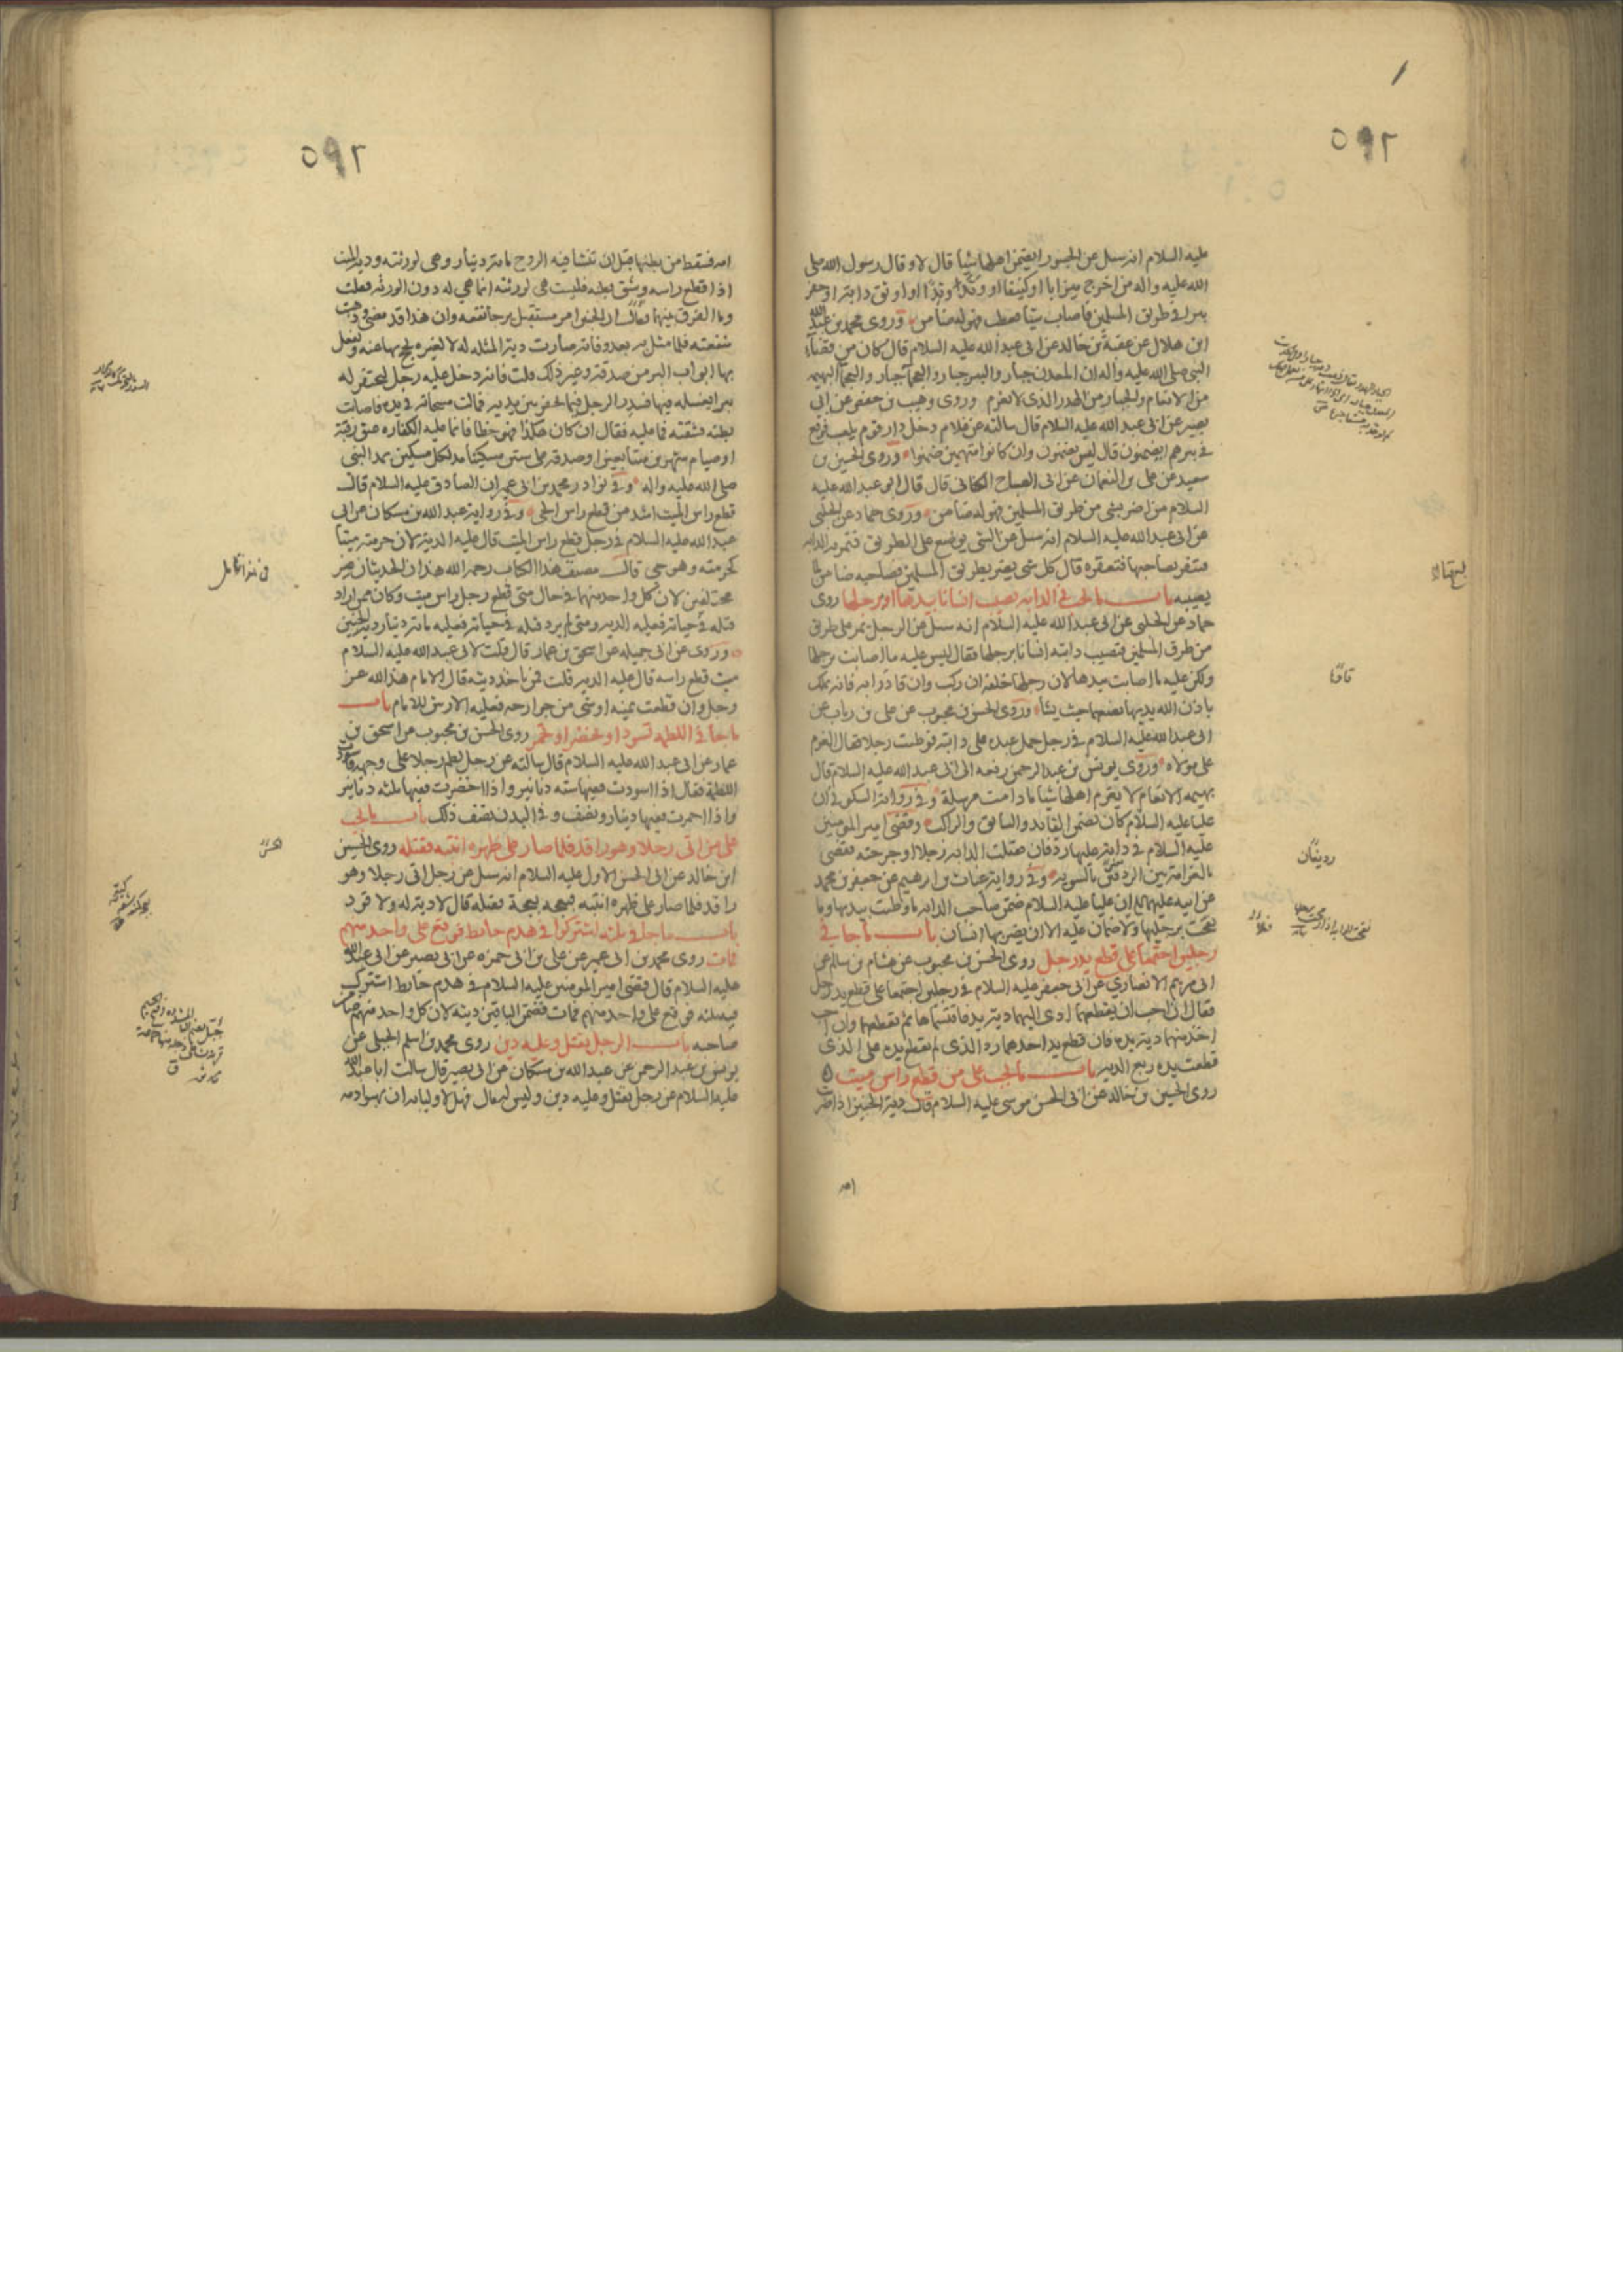 ٥٩٢
عليه السلام انه سئل عن الجسور ايضمن اهلها شيئا قال لا وقال رسول الله صلى
الله عليه واله من اخرج ميزابا او كنيفا او وتد وتدا او اوثق دابة او حفر
بيرا في طريق المسلمين فاصاب شيئا فعطب فهو له ضامن وروى محمد بن عبد الله
ابن هلال عن عقبة بن خالد عن ابى عبد الله عليه السلام قال كان من قضاء
النبى صلى الله عليه واله ان المعدن جبار والبير جبار والعجماء جبار والعجماء البهيمه
من الانعام والجبار من الهدر الذى لا يغرم وروى وهيب بن حفص عن ابى
بصير عن ابى عبد الله عليه السلام قال سالته عن غلام دخل دار قوم يلعب فوقع
فى بيرهم ايضمنون قال ليس يضمنون وان كانوا متهمين ضمنوا وروى الحسين بن
سعيد عن على بن النعمان عن ابى الصباح الكنانى قال قال ابو عبد الله عليه
السلام من اضر بشى من طريق المسلمين فهو له ضامن وروى حماد عن الحلبى
عن ابى عبد الله عليه السلام انه سئل عن الشى يوضع على الطريق فتمر به الدابه
فتنفر بصاحبها فتعقره قال كل شى يضر بطريق المسلمين فصاحبه ضامن لما
يصيبه باب ما يجب فى الدابه تصيب انسانا بيدها او برجلها روى
حماد عن الحلبى عن ابى عبد الله عليه السلام انه سئل عن الرجل يمر على طريق
من طرق المسلمين فتصيب دابته انسانا برجلها فقال ليس عليه ما اصابت برجلها
ولكن عليه ما اصابت بيدها لان رجلها خلفه ان ركب وان قاد دابه فانه يملك
باذن الله يديها يضعها حيث يشأ وروى الحسن بن محبوب عن على بن رياب عن
ابى عبد الله عليه السلام فى رجل حمل عبده على دابته فوطئت رجلا فقال الغرم
على مولاه وروى يونس بن عبد الرحمن رفعه الى ابى عبد الله عليه السلام قال
بهيمه الانعام لا يغرم اهلها شيئا ما دامت مرسلة وفى رواية السكونى ان
عليا عليه السلام كان يضمن القايد والسايق والراكب وقضى امير المومنين
عليه السلام فى دابة عليها ردفان فقتلت الدابه رجلا او جرحته فقضى
بالغرامة بين الردفين بالسويه وفى رواية غياث بن ابرهيم عن جعفر بن محمد
عن ابيه عليهما السلام ان عليا عليه السلام ضمن صاحب الدابه ما وطئت بيديها وما
نفحت برجليها ولا ضمان عليه الا ان يضربها انسان باب ما جا فى
رجلين اجتمعا على قطع يد رجل روى الحسن بن محبوب عن هشام بن سالم عن
ابى مريم الانصارى عن ابى جعفر عليه السلام فى رجلين اجتمعا على قطع يد رجل
فقال ان احب ان يقطعهما ادى اليهما دية يد فاقتسماها ثم يقطعهما وان احب
اخذ منهما دية يد فان قطع يد احدهما رد الذى لم تقطع يده على الذى
قطعت يده ربع الدية باب ما يجب على من قطع راس ميت
روى الحسين بن خالد عن ابى الحسن موسى عليه السلام قال دية الجنين اذا ضربت
امه
تافا
ردیفان
٥٩٢
امه فسقط من بطنها قبل ان تنشا فيه الروح ماية دينار وهى لورثته ودية الميت
اذا قطع راسه وشق بطنه فليست هى لورثته انما هى له دون الورثه فقلت
وما الفرق بينهما فقال ان الجنين امر مستقبل يرجا نفعه وان هذا قد مضى وذهبت
منفعته فلما مثل به بعد وفاته صارت دية المثله له لا لغيره يحج بها عنه ويفعل
بها ابواب البر من صدقة وغير ذلك قلت فانه دخل عليه رجل ليحفر له
بيرا يغسله فيها فسدر الرجل فيما يحفر بين يديه فمالت مسحاته فى يده فاصابت
بطنه فشقته فما عليه فقال ان كان هكذا فهو خطا فانما عليه الكفاره عتق رقبة
او صيام شهرين متتابعين او صدقه على ستين مسكينا مد لكل مسكين بمد النبى
صلى الله عليه واله وفى نوادر محمد بن ابى عمير ان الصادق عليه السلام قال
قطع راس الميت اشد من قطع راس الحى وفى رواية عبد الله بن مسكان عن ابى
عبد الله عليه السلام فى رجل قطع راس الميت قال عليه الدية لان حرمته ميتا
كحرمته وهو حى قال مصنف هذا الكتاب رحمه الله هذان الحديثان غير
مختلفين لان كل واحد منهما فى حال متى قطع رجل راس ميت وكان ممن اراد
قتله فى حياته فعليه الديه ومتى لم يرد قتله فى حياته فعليه ماية دينار دية الجنين
وروى عن ابى جميله عن اسحق بن عمار قال قلت لابى عبد الله عليه السلام
ميت قطع راسه قال عليه الديه قلت فمن ياخذ ديته قال الامام هذا لله عز
وجل وان قطعت يمينه او شى من جوارحه فعليه الارش للامام باب
ما جا فى اللطمه تسود او تخضر او تحمر روى الحسن بن محبوب عن اسحق بن
عمار عن ابى عبد الله عليه السلام قال سالته عن رجل لطم رجلا على وجهه فاسودت
اللطمة فقال اذا اسودت ففيها سته دنانير واذا اخضرت ففيها ثلثه دنانير
واذا احمرت ففيها دينار ونصف وفى البدن نصف ذلك باب ما يجب
على من اتى رجلا وهو راقد فلما صار على ظهره انتبه فقتله روى الحسين
ابن خالد عن ابى الحسن الاول عليه السلام انه سئل عن رجل اتى رجلا وهو
راقد فلما صار على ظهره انتبه فبعجه بعجة فقتله قال لا دية له ولا قود
باب ما جا فى ثلثه اشتركوا فى هدم حايط فوقع على واحد منهم
فمات روى محمد بن ابى عمير عن على بن ابى حمزه عن ابى بصير عن ابى عبد الله
عليه السلام قال قضى امير المومنين عليه السلام فى هدم حايط اشترك
فيه ثلثه فوقع على واحد منهم فمات فضمن الباقين ديته لان كل واحد منهم ضامن
صاحبه باب الرجل يقتل وعليه دين روى محمد بن اسلم الجبلى عن
يونس بن عبد الرحمن عن عبد الله بن مسكان عن ابى بصير قال سالت ابا عبد الله
عليه السلام عن رجل يقتل وعليه دين وليس له مال فهل لاوليائه ان يهبوا دمه